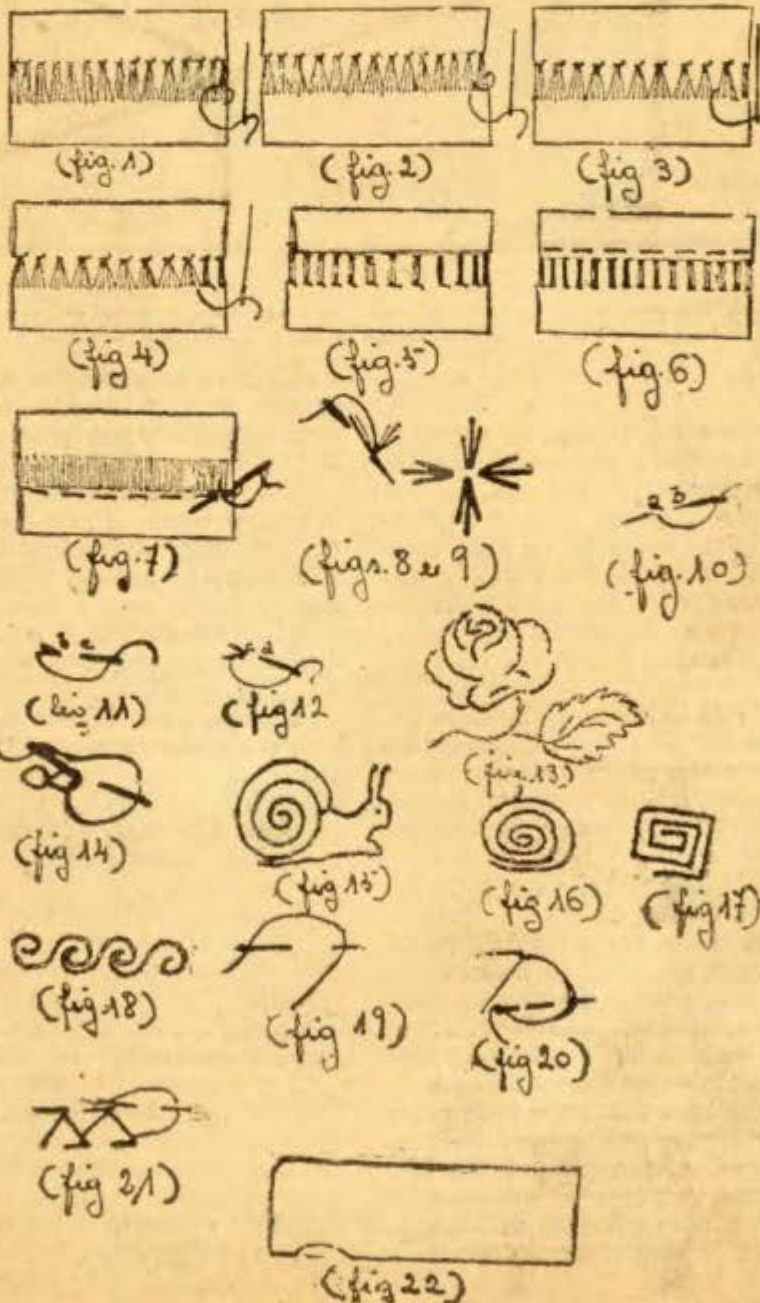 (fig. 1) (fig. 2) (fig 3)
(fig 4) (fig. 5) (fig. 6)
a b
(fig. 7) (figs. 8 e 9) (fig. 10)
b c d
(fig 11) (fig 12
(fig. 13)
(fig 14) (fig 15) (fig 16) (fig 17)
(fig 18) (fig 19) (fig 20)
(fig 21)
(fig 22)